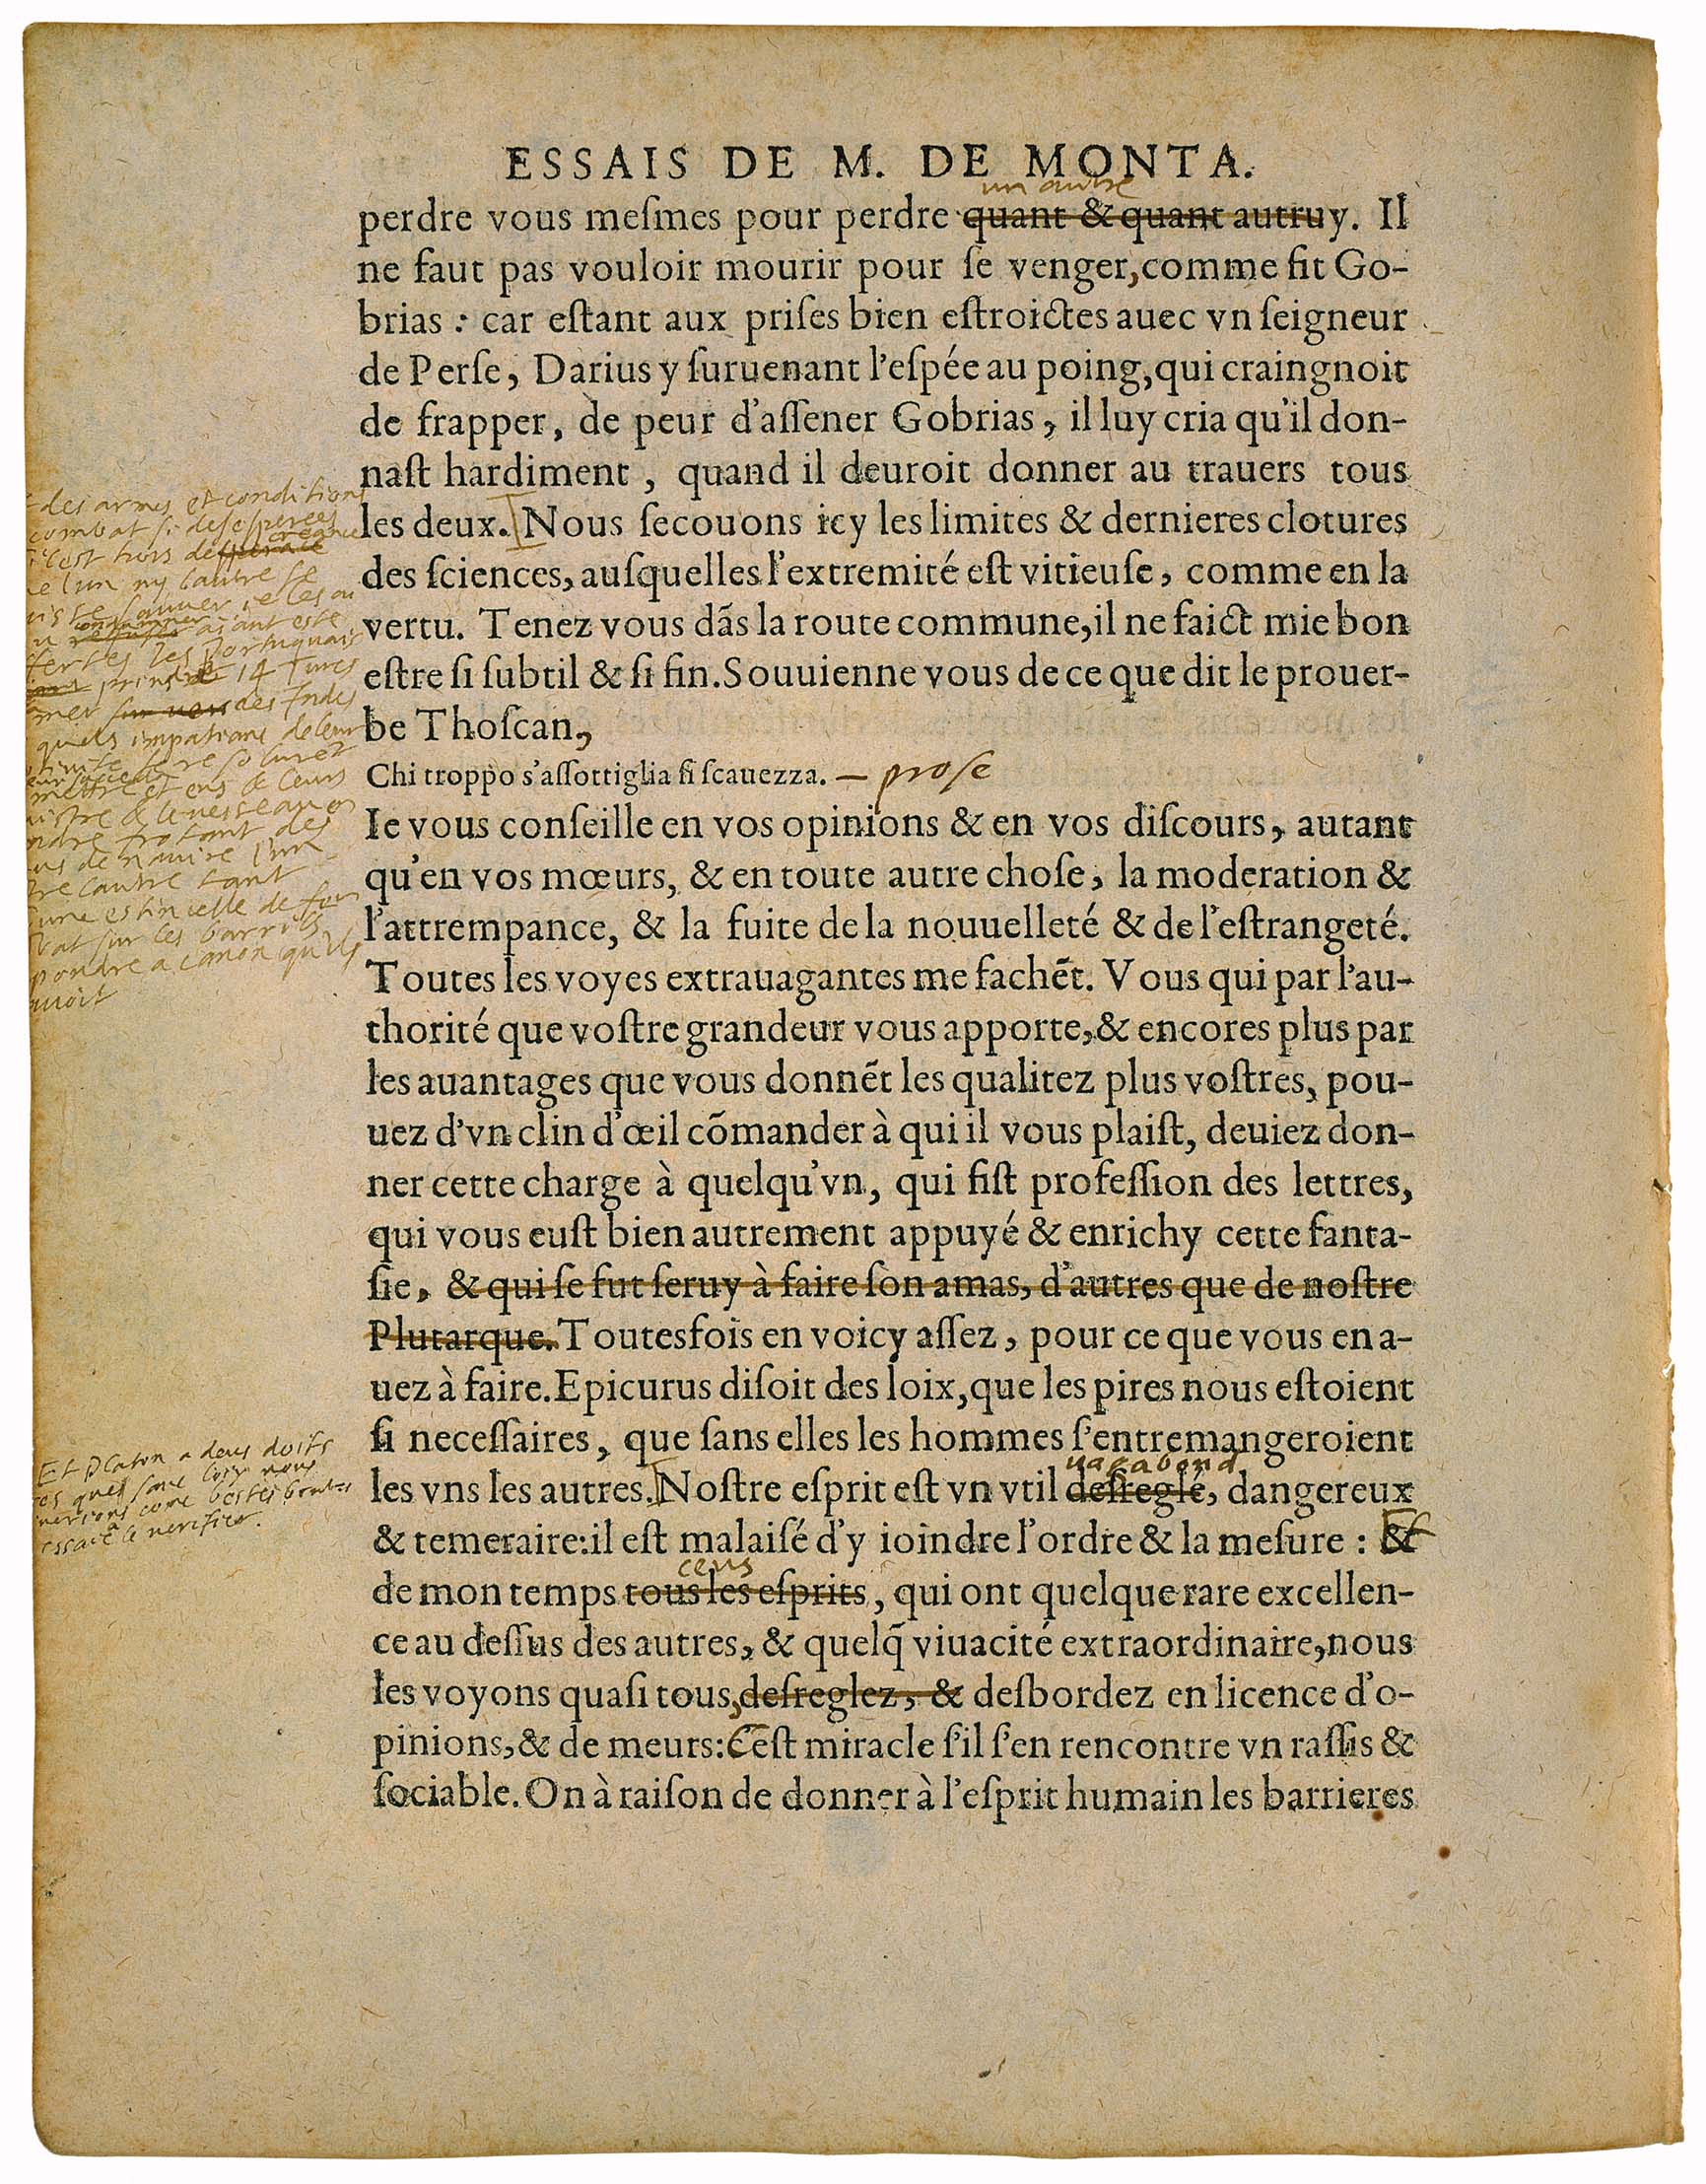 ESSAIS DE M. DE MONTA.
un autre
perdre vous meſmes pour perdre quant & quant autruy. Il
ne faut pas vouloir mourir pour ſe venger, comme fit Go-
brias : car eſtant aux priſes bien eſtroictes auec vn ſeigneur
de Perſe, Darius y ſuruenant l'eſpée au poing, qui craingnoit
de frapper, de peur d'aſſener Gobrias, il luy cria qu'il don-
naſt hardiment, quand il deuroit donner au trauers tous
les deux. Nous ſecouons icy les limites & dernieres clotures
des ſciences, auſquelles l'extremité eſt vitieuſe, comme en la
vertu. Tenez vous dãs la route commune, il ne faict mie bon
eſtre ſi ſubtil & ſi fin. Souuienne vous de ce que dit le prouer-
be Thoſcan,
Chi troppo s'aſſottiglia ſi ſcauezza. — prose
Ie vous conſeille en vos opinions & en vos diſcours, autant
qu'en vos mœurs, & en toute autre choſe, la moderation &
l'attrempance, & la fuite de la nouuelleté & de l'eſtrangeté.
Toutes les voyes extrauagantes me fachẽt. Vous qui par l'au-
thorité que voſtre grandeur vous apporte, & encores plus par
les auantages que vous donnẽt les qualitez plus voſtres, pou-
uez d'vn clin d'œil cõmander à qui il vous plaiſt, deuiez don-
ner cette charge à quelqu'vn, qui fiſt profeſſion des lettres,
qui vous euſt bien autrement appuyé & enrichy cette fanta-
ſie, & qui ſe fut ſeruy à faire ſon amas, d'autres que de noſtre
Plutarque. Toutesfois en voicy aſſez, pour ce que vous en a-
uez à faire. Epicurus diſoit des loix, que les pires nous eſtoient
ſi neceſſaires, que ſans elles les hommes s'entremangeroient
vagabond
les vns les autres. Noſtre eſprit eſt vn vtil deſreglé, dangereux
& temeraire: il eſt malaiſé d'y ioindre l'ordre & la meſure : Et
ceus
de mon temps tous les eſprits, qui ont quelque rare excellen-
ce au deſſus des autres, & quelq̃ viuacité extraordinaire, nous
les voyons quaſi tous, deſreglez, & deſbordez en licence d'o-
pinions, & de meurs: C'eſt miracle s'il s'en rencontre vn raſſis &
ſociable. On à raiſon de donner à l'eſprit humain les barrieres
des armes et conditions
combat si desesperees
c'est hors de creance
l'un ny l'autre se
sauver
aiant este
les Portuguais
prins 14 Turcs
mer des Indes
quels impatians de leur
se resolurent
mettre et eus & leurs
& le vesseau en
frotant des
de navire l'un
l'autre tant
une estincelle de feu
sur les barrils
poudre a canon qu'ils
Et Platon a deus doits
pres quel sans loix nous
come bestes brutes
essaie le verifier.